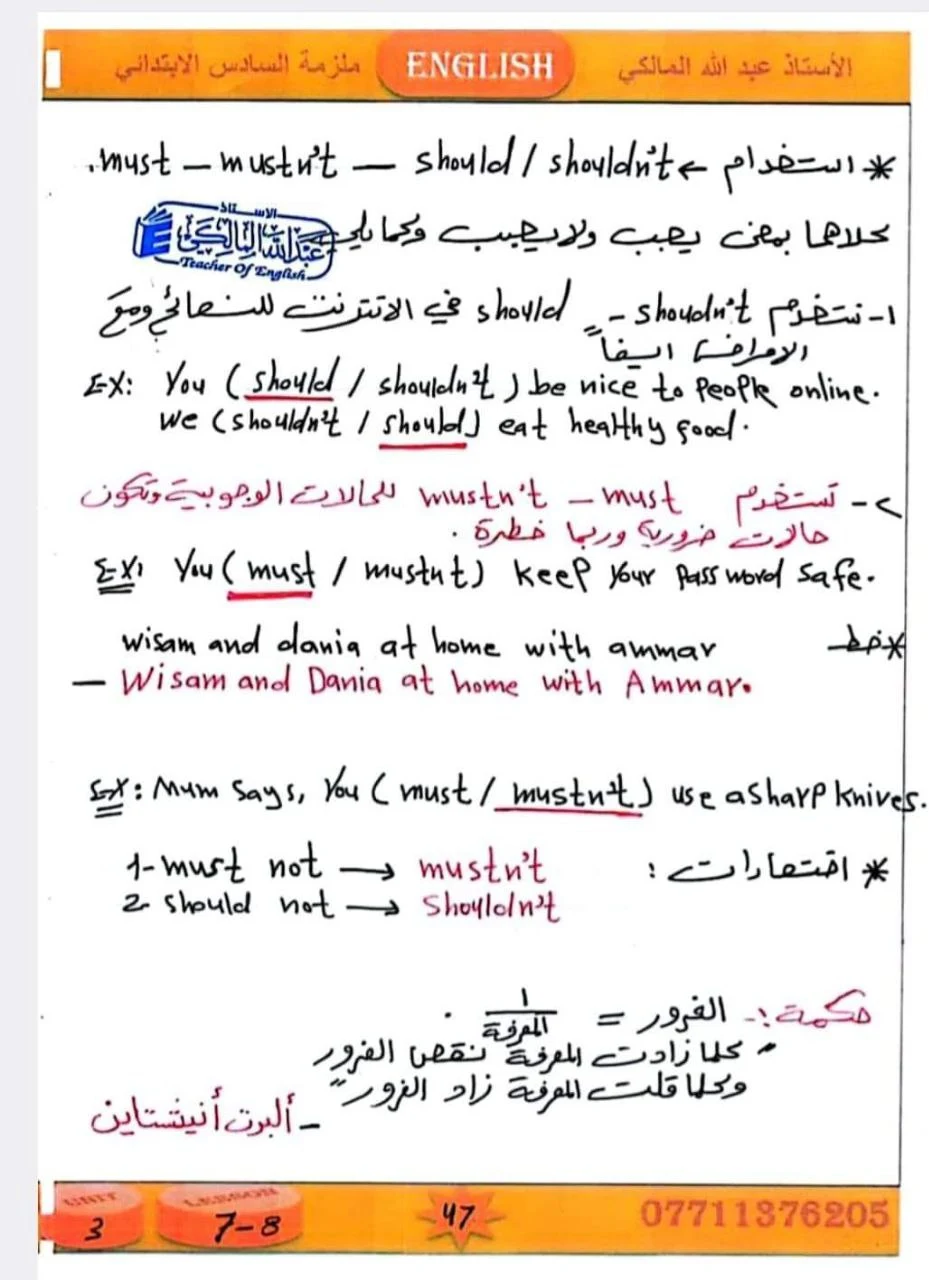 الأستاذ عبد الله المالكي ENGLISH ملزمة السادس الابتدائي
* استخدام ← must – mustn't – should / shouldn't.
كلاهما بمعنى يجب ولا يجب وكما يلي
الاستاذ
عبدالله المالكي
Teacher Of English
١- نستخدم should – shoudn't في الانترنت للنصائح ومع
الامراض ايضاً
EX: You (should / shouldn't) be nice to people online.
we (shouldn't / should) eat healthy food.
٢- تستخدم mustn't – must للحالات الوجوبية وتكون
حالات ضرورية وربما خطرة .
EX: You (must / mustnt) keep your password safe.
* خط wisam and dania at home with ammar
– Wisam and Dania at home with Ammar.
EX: Mum says, you (must / mustn't) use a sharp knives.
* اختصارات :
1- must not → mustn't
2- should not → Shouldn't
حكمة :- الغرور = ١ / المعرفة .
" كلما زادت المعرفة نقص الغرور
وكلما قلت المعرفة زاد الغرور "
– ألبرت أنيشتاين
UNIT 3 LESSON 7-8 47 07711376205